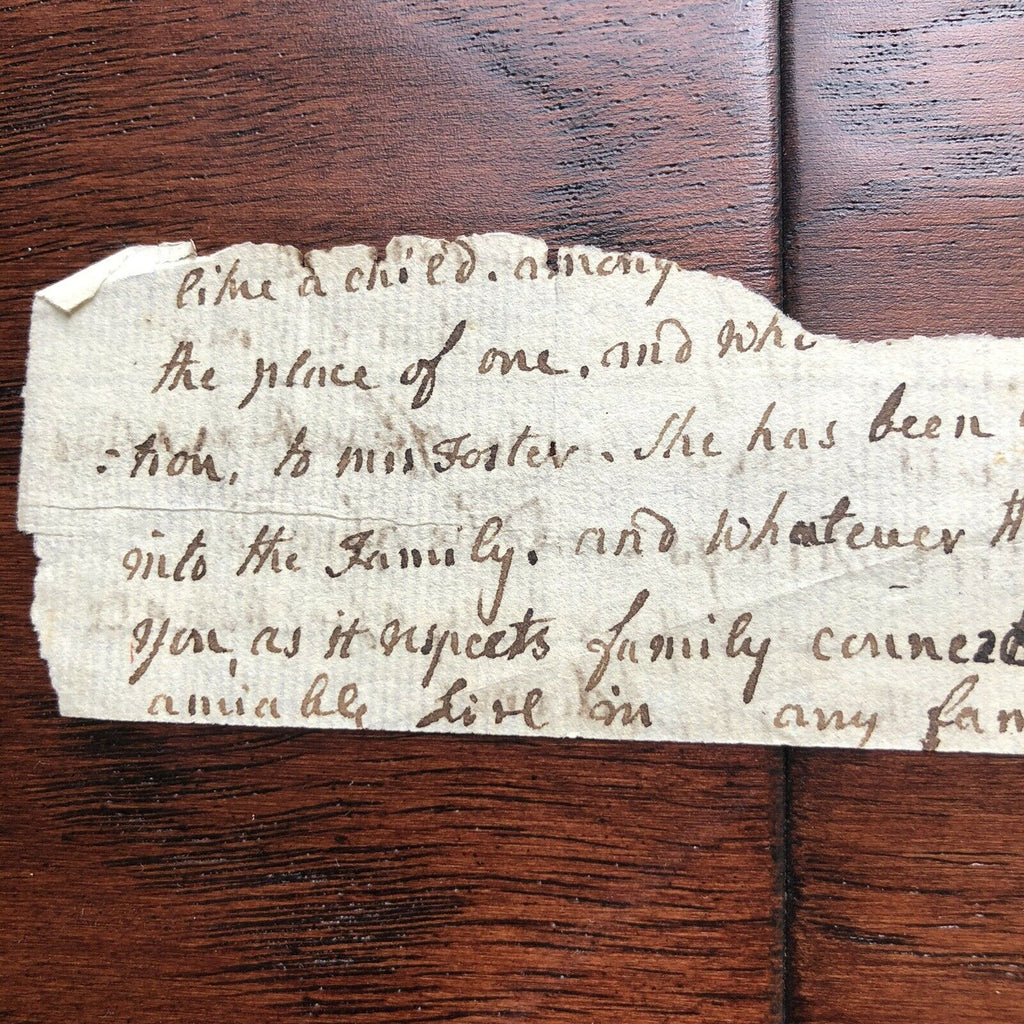 like a child. among
the place of one. and whe
:tion, to miss Foster. She has been
into the Family. and whatever th
you, as it respects family connect
amiable Girl in any fam